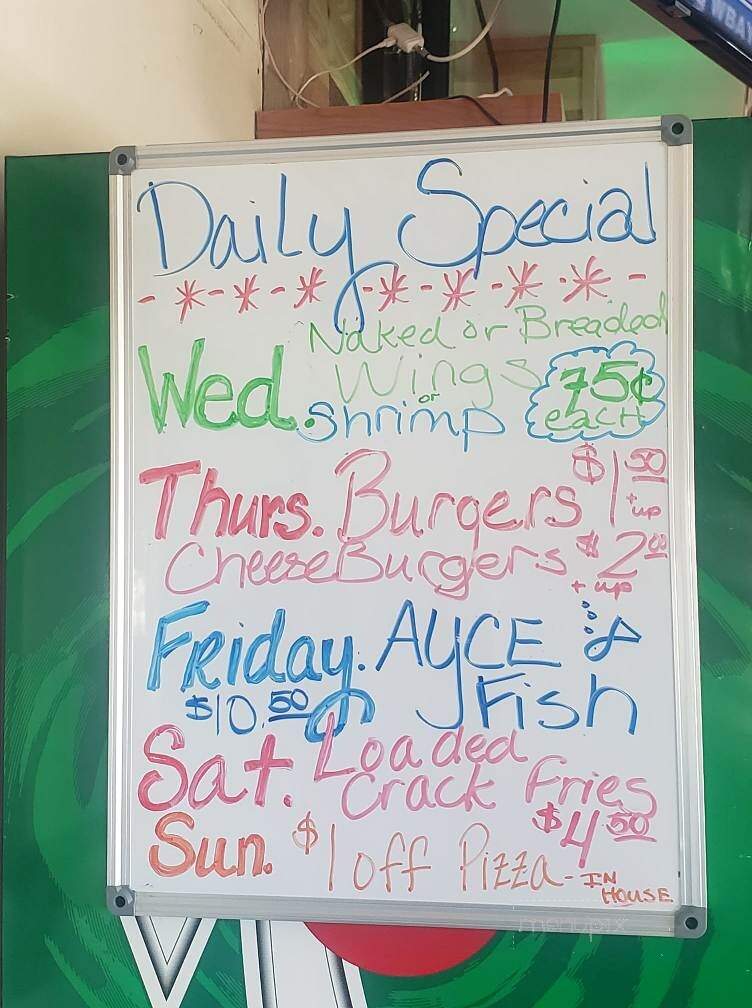 WBAY
Daily Special
- * - * - * - * - * - * - * -
Naked or Breaded
Wed. Wings 75¢
or
Shrimp each
Thurs. Burgers $1 50
+ up
CheeseBurgers $2 00
+ up
Friday. AYCE
$10.50 Fish
Sat. Loaded
Crack Fries
$4 50
Sun. $1 off Pizza - IN
HOUSE
menupix